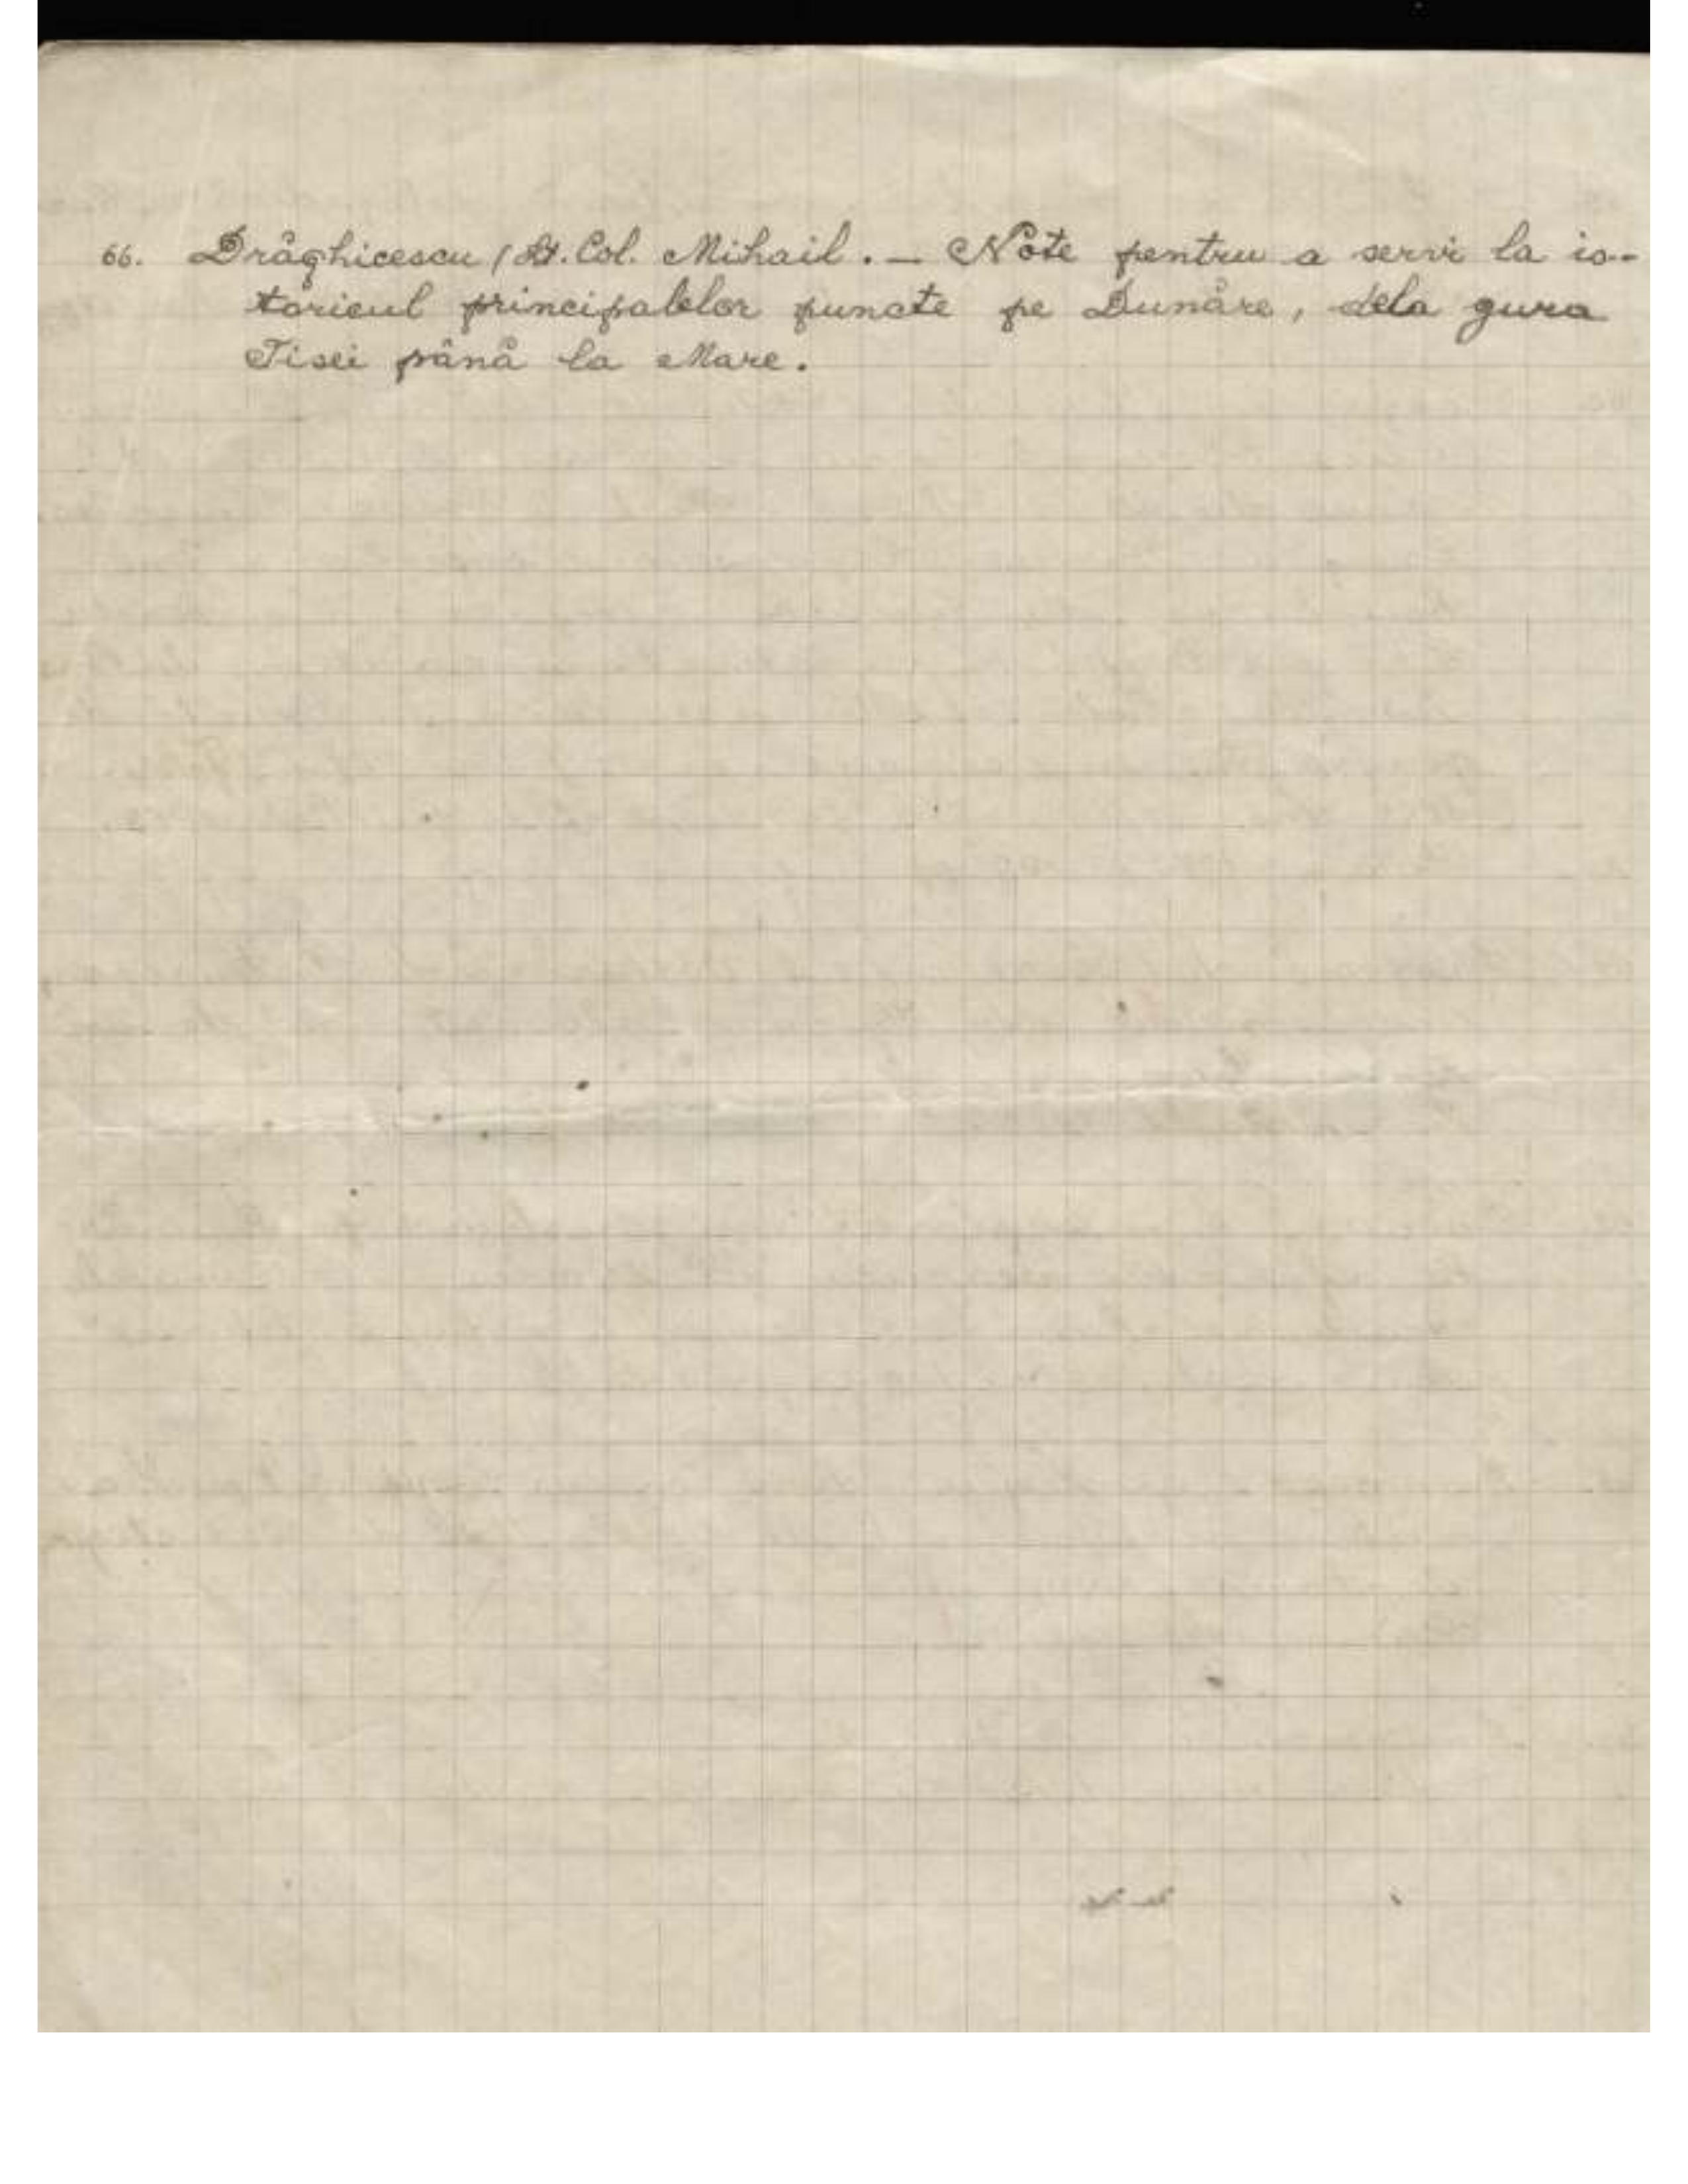 66. Drăghicescu (Lt. Col. Mihail. — Note pentru a servi la is-
toricul principalelor puncte pe Dunăre, dela gura
Tisei până la Mare.